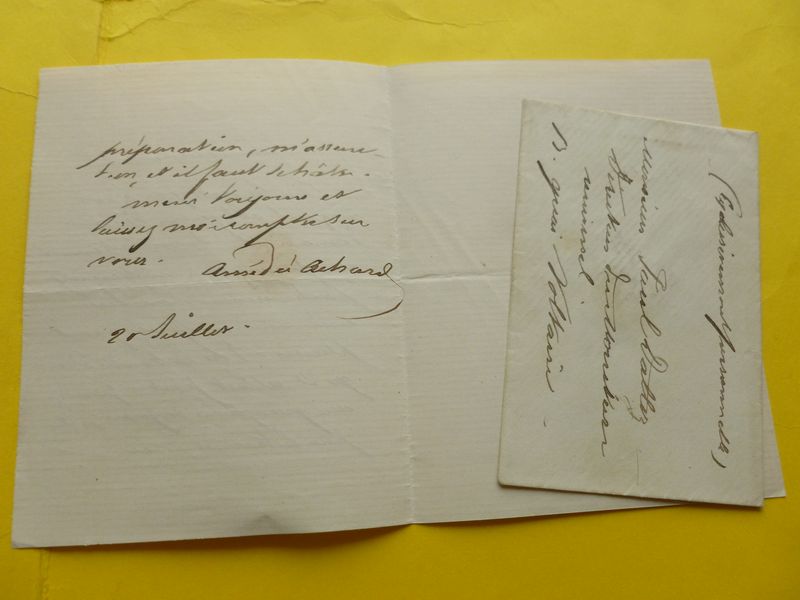 préparation, m'assure-
t-on, et il faut se hâter.
merci toujours et
laissez moi compter sur
vous.
Amédée Achard
20 Juillet.
(exclusivement personnelle)
Monsieur Paul Dalloz
Directeur du Moniteur
universel
13. quai Voltaire